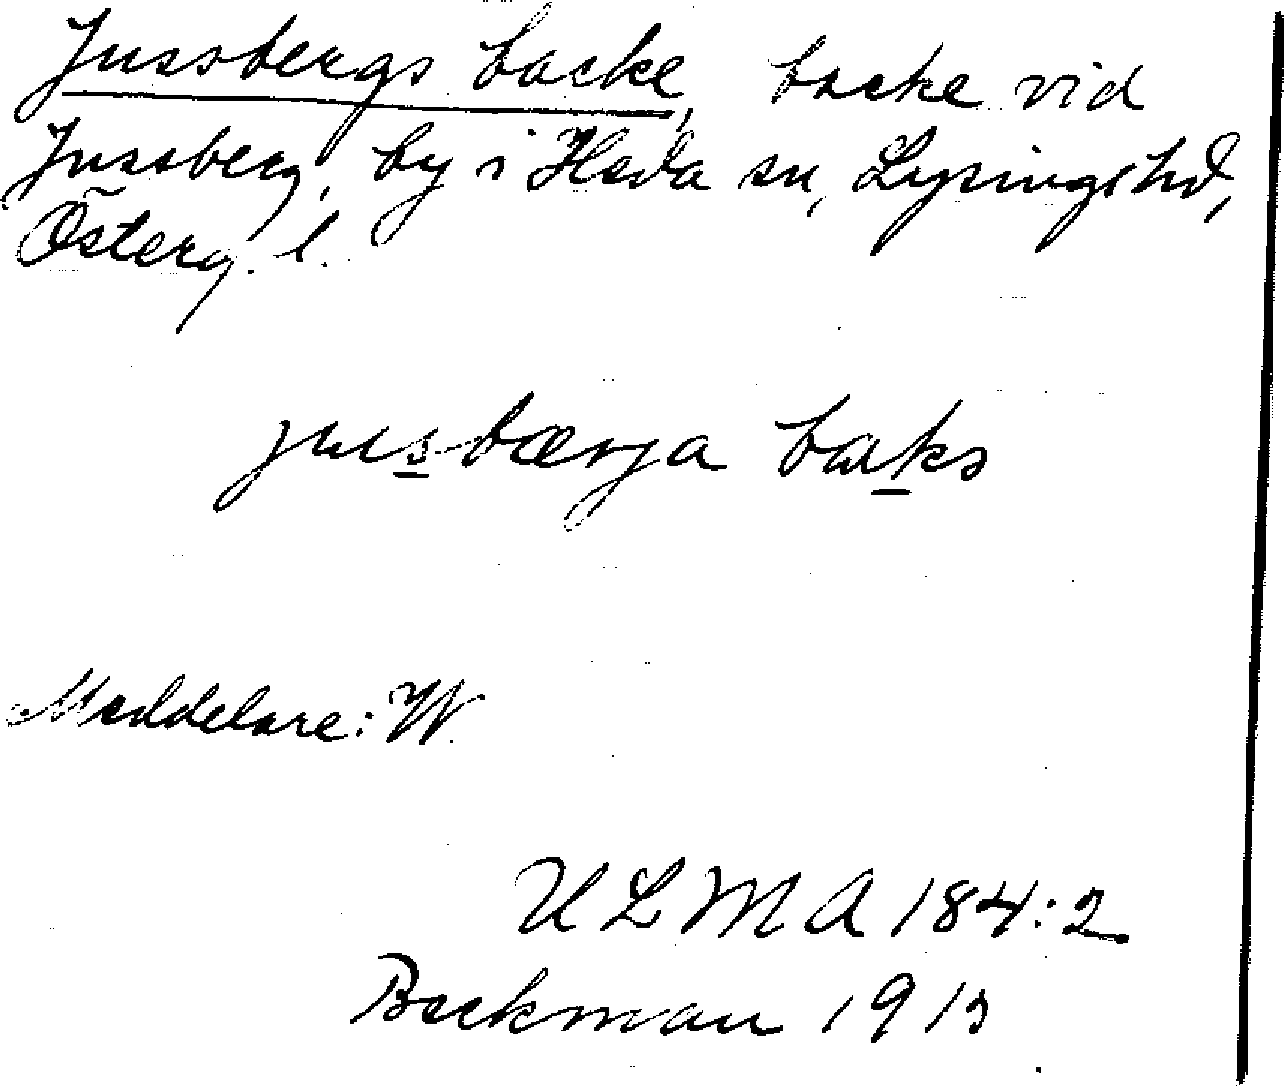 Jussbergs backe, backe vid
Jussberg, by i Heda sn, Lysings hd,
Österg. l.
jusbærja baks
Meddelare: W.
ULMA 184:2
Beckman 1913